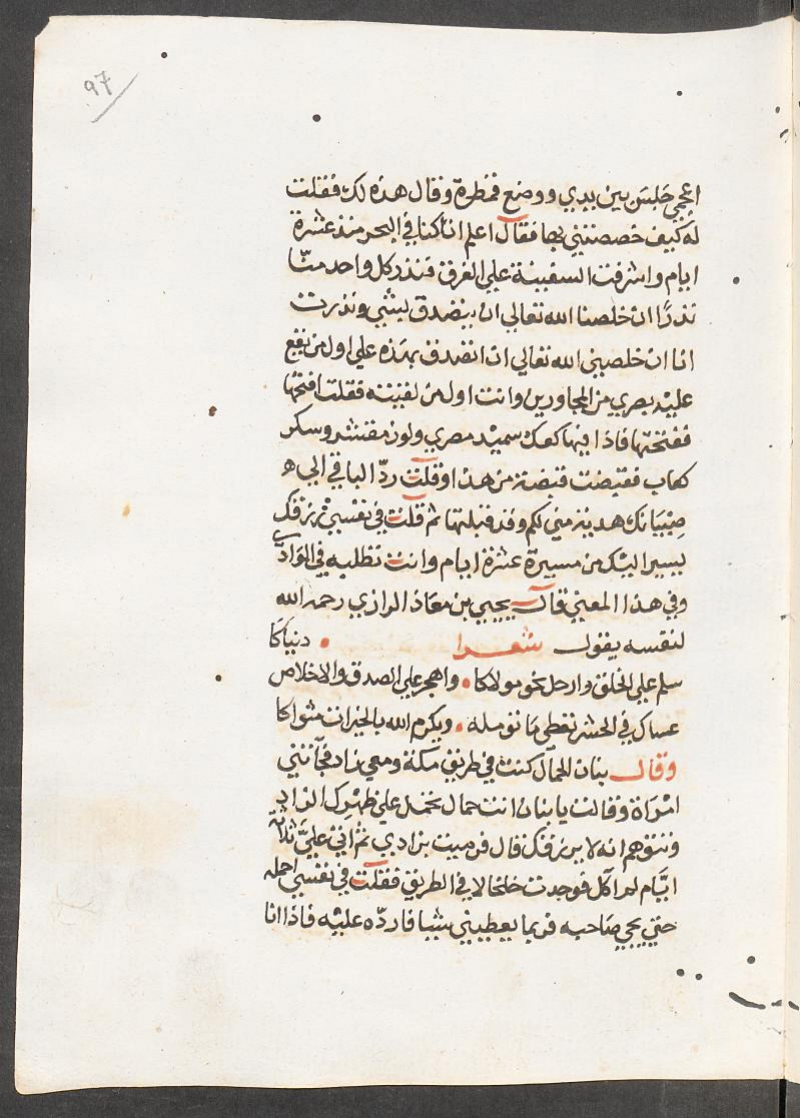 97
اعجمي جلس بين يدي ووضع قمطرة وقال هذه لك فقلت
له كيف خصصتني بها فقال اعلم اناكنا في البحر منذ عشرة
ايام واشرفت السفينة علي الغرق فنذر كل واحد منّا
نذرًا ان خلصنا الله تعالي ان يتصدق بشي ونذرت
انا ان خلصني الله تعالي ان اتصدق بهذه علي اول من يقع
عليه بصري من المجاورين وانت اول من لقيته فقلت افتحها
ففتحتها فاذا فيها كعك سميد مصري ولوز مقشر وسكر
كعاب فقبضت قبضة من هذا وقلت ردّ الباقي الي
صبيانك هدية مني لكم وقد قبلتها ثم قلت في نفسي رزقك
يسير اليك من مسيرة عشرة ايام وانت تطلبه في الوادي
وفي هذا المعني قال يحيي بن معاذ الرازي رحمه الله
لنفسه يقول شعرا • دنياكا
سلم علي الخلق وارحل نحو مولاكا • واهجر علي الصدق والاخلاص
عساك في الحشر تعطي ما تومله • ويكرم الله بالخيرات مثواكا
وقال بنان الحمال كنت في طريق مكة ومعي زاد فجآتني
امراة وقالت يا بنان انت حمال تحمل علي ظهرك الزاد
وتتوهم انه لا يرزقك قال فرميت بزادي ثم اتي عليّ ثلاثة
ايّام لم اكل فوجدت خلخالا في الطريق فقلت في نفسي احمله
حتي يجي صاحبه فربما يعطيني شيا فارده عليه فاذا انا